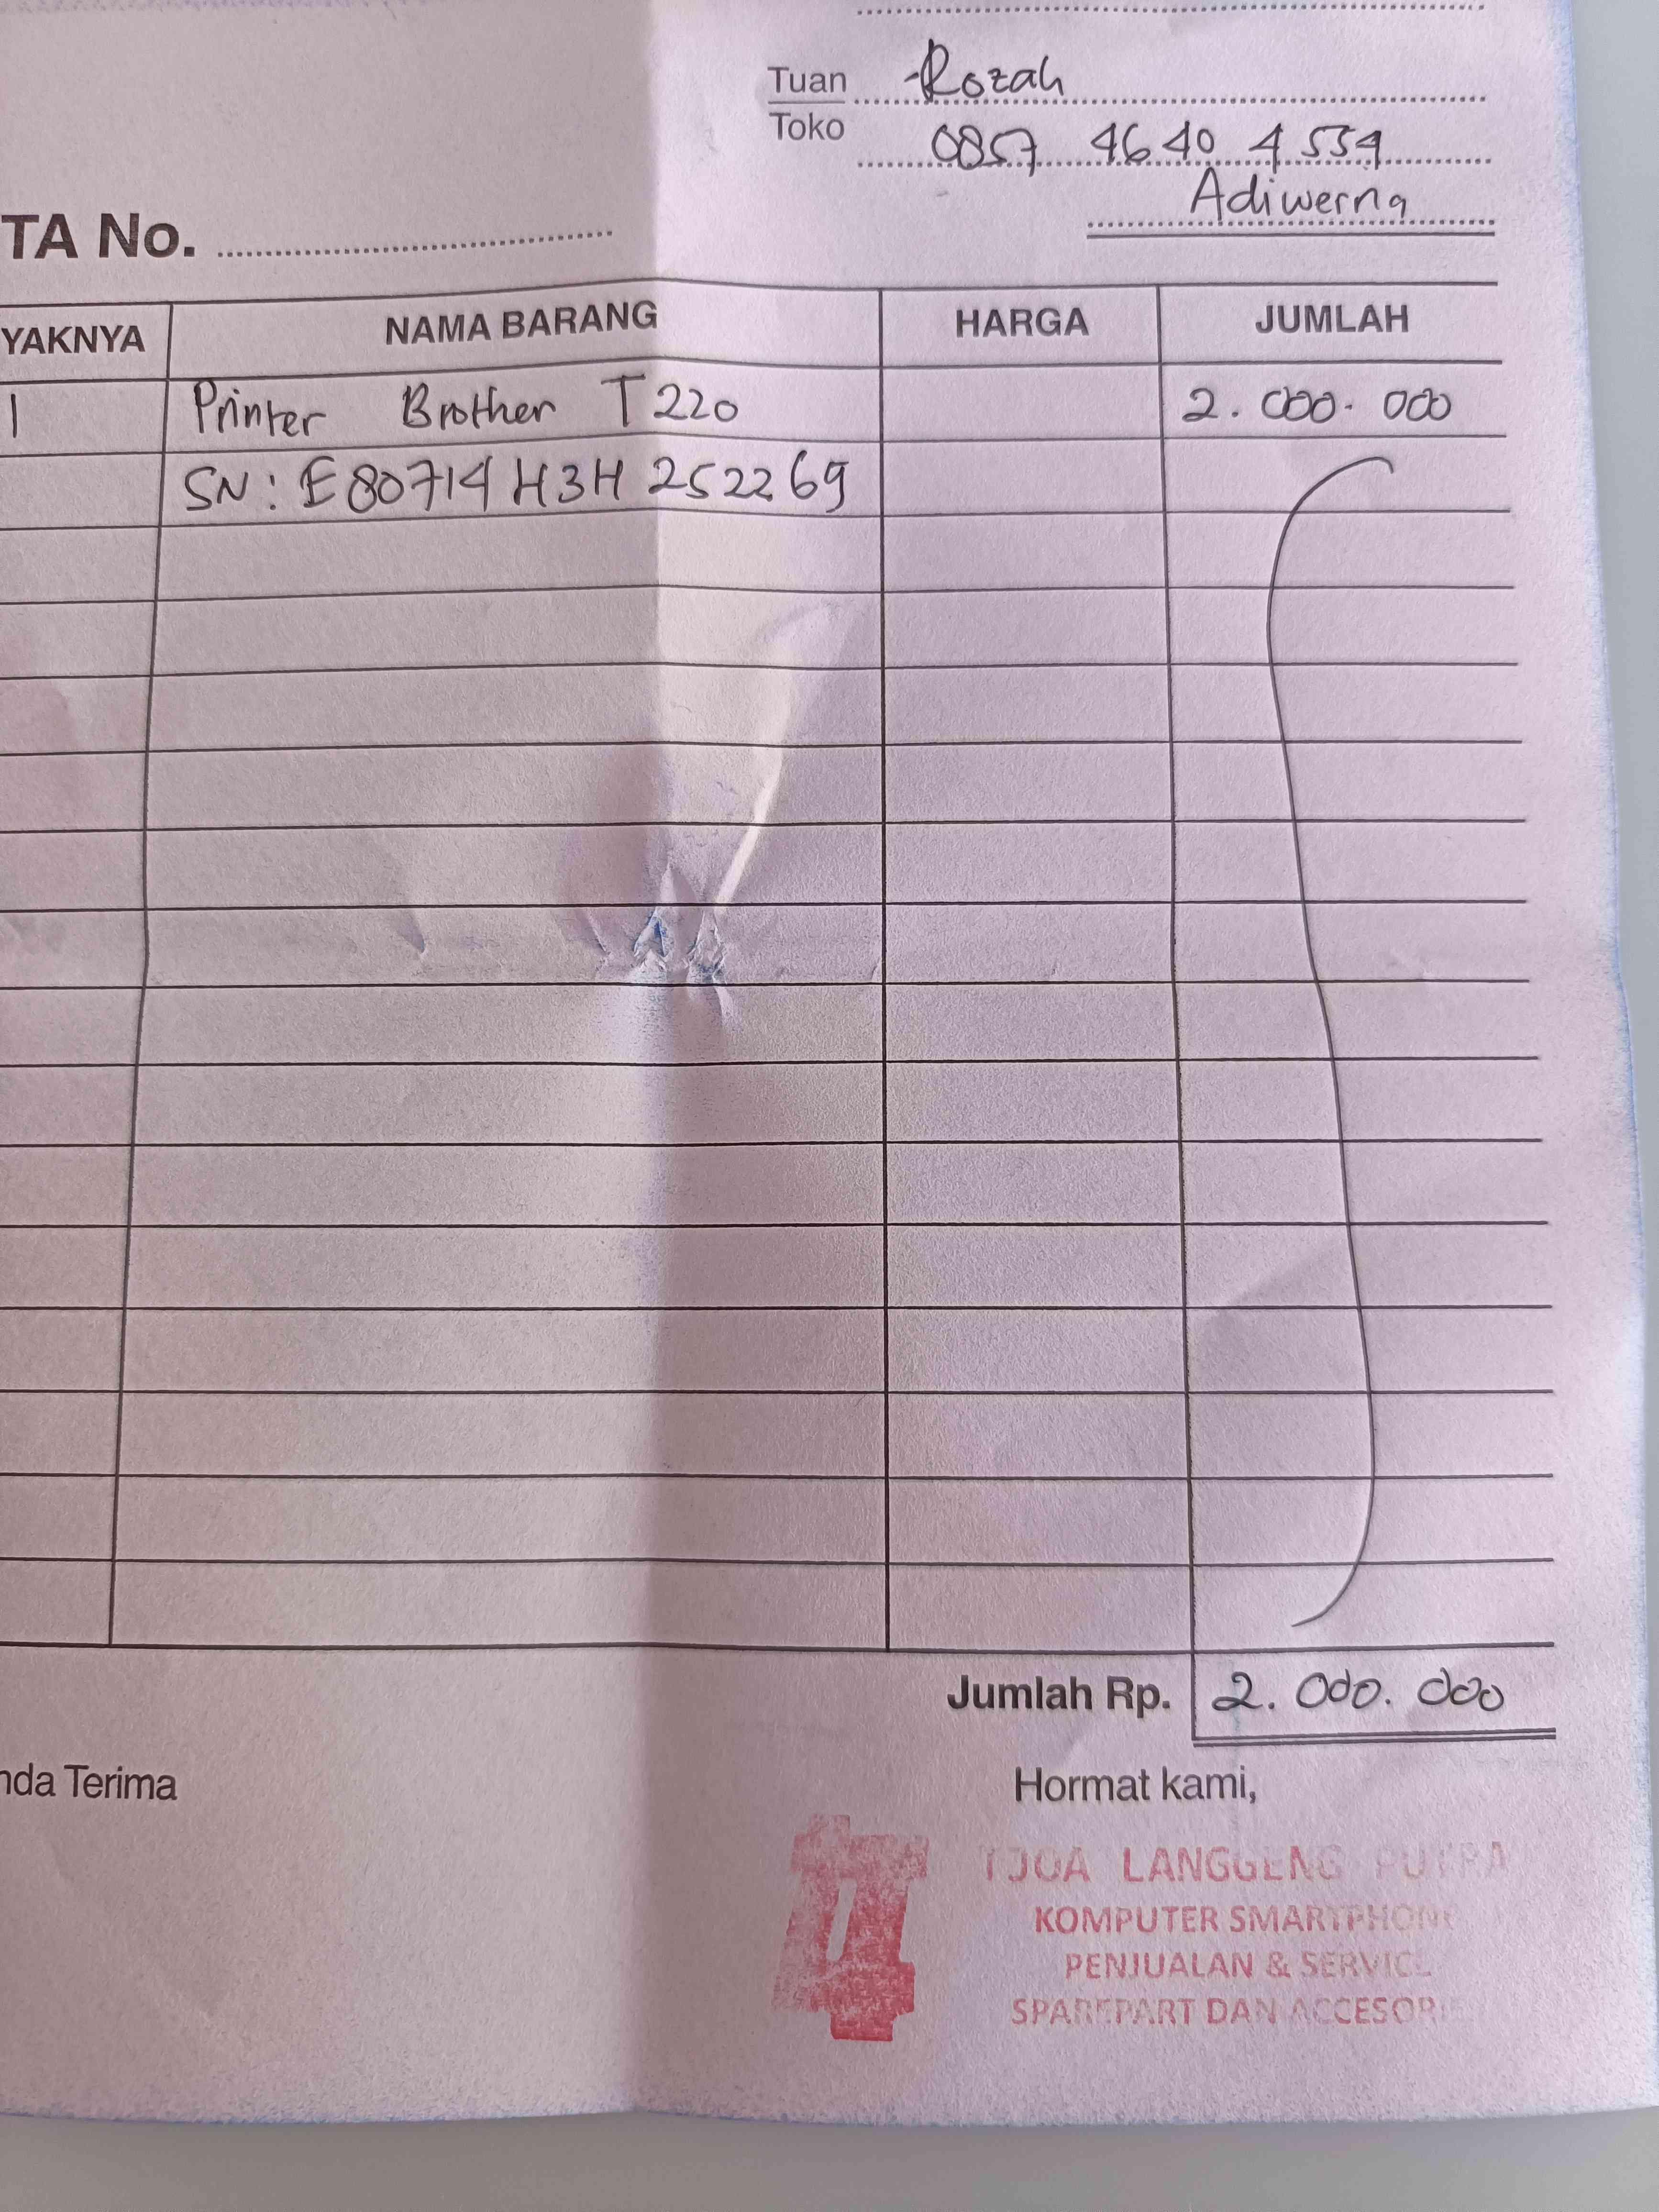 Tuan Rozah
Toko 0857 4640 4534
Adiwerna
TA No.
YAKNYA NAMA BARANG HARGA JUMLAH
1 Printer Brother T220 2.000.000
SN: E80714H3H252269
Jumlah Rp. 2.000.000
nda Terima Hormat kami,
TJOA LANGGENG PUTRA
KOMPUTER SMARTPHONE
PENJUALAN & SERVICE
SPAREPART DAN ACCESORI